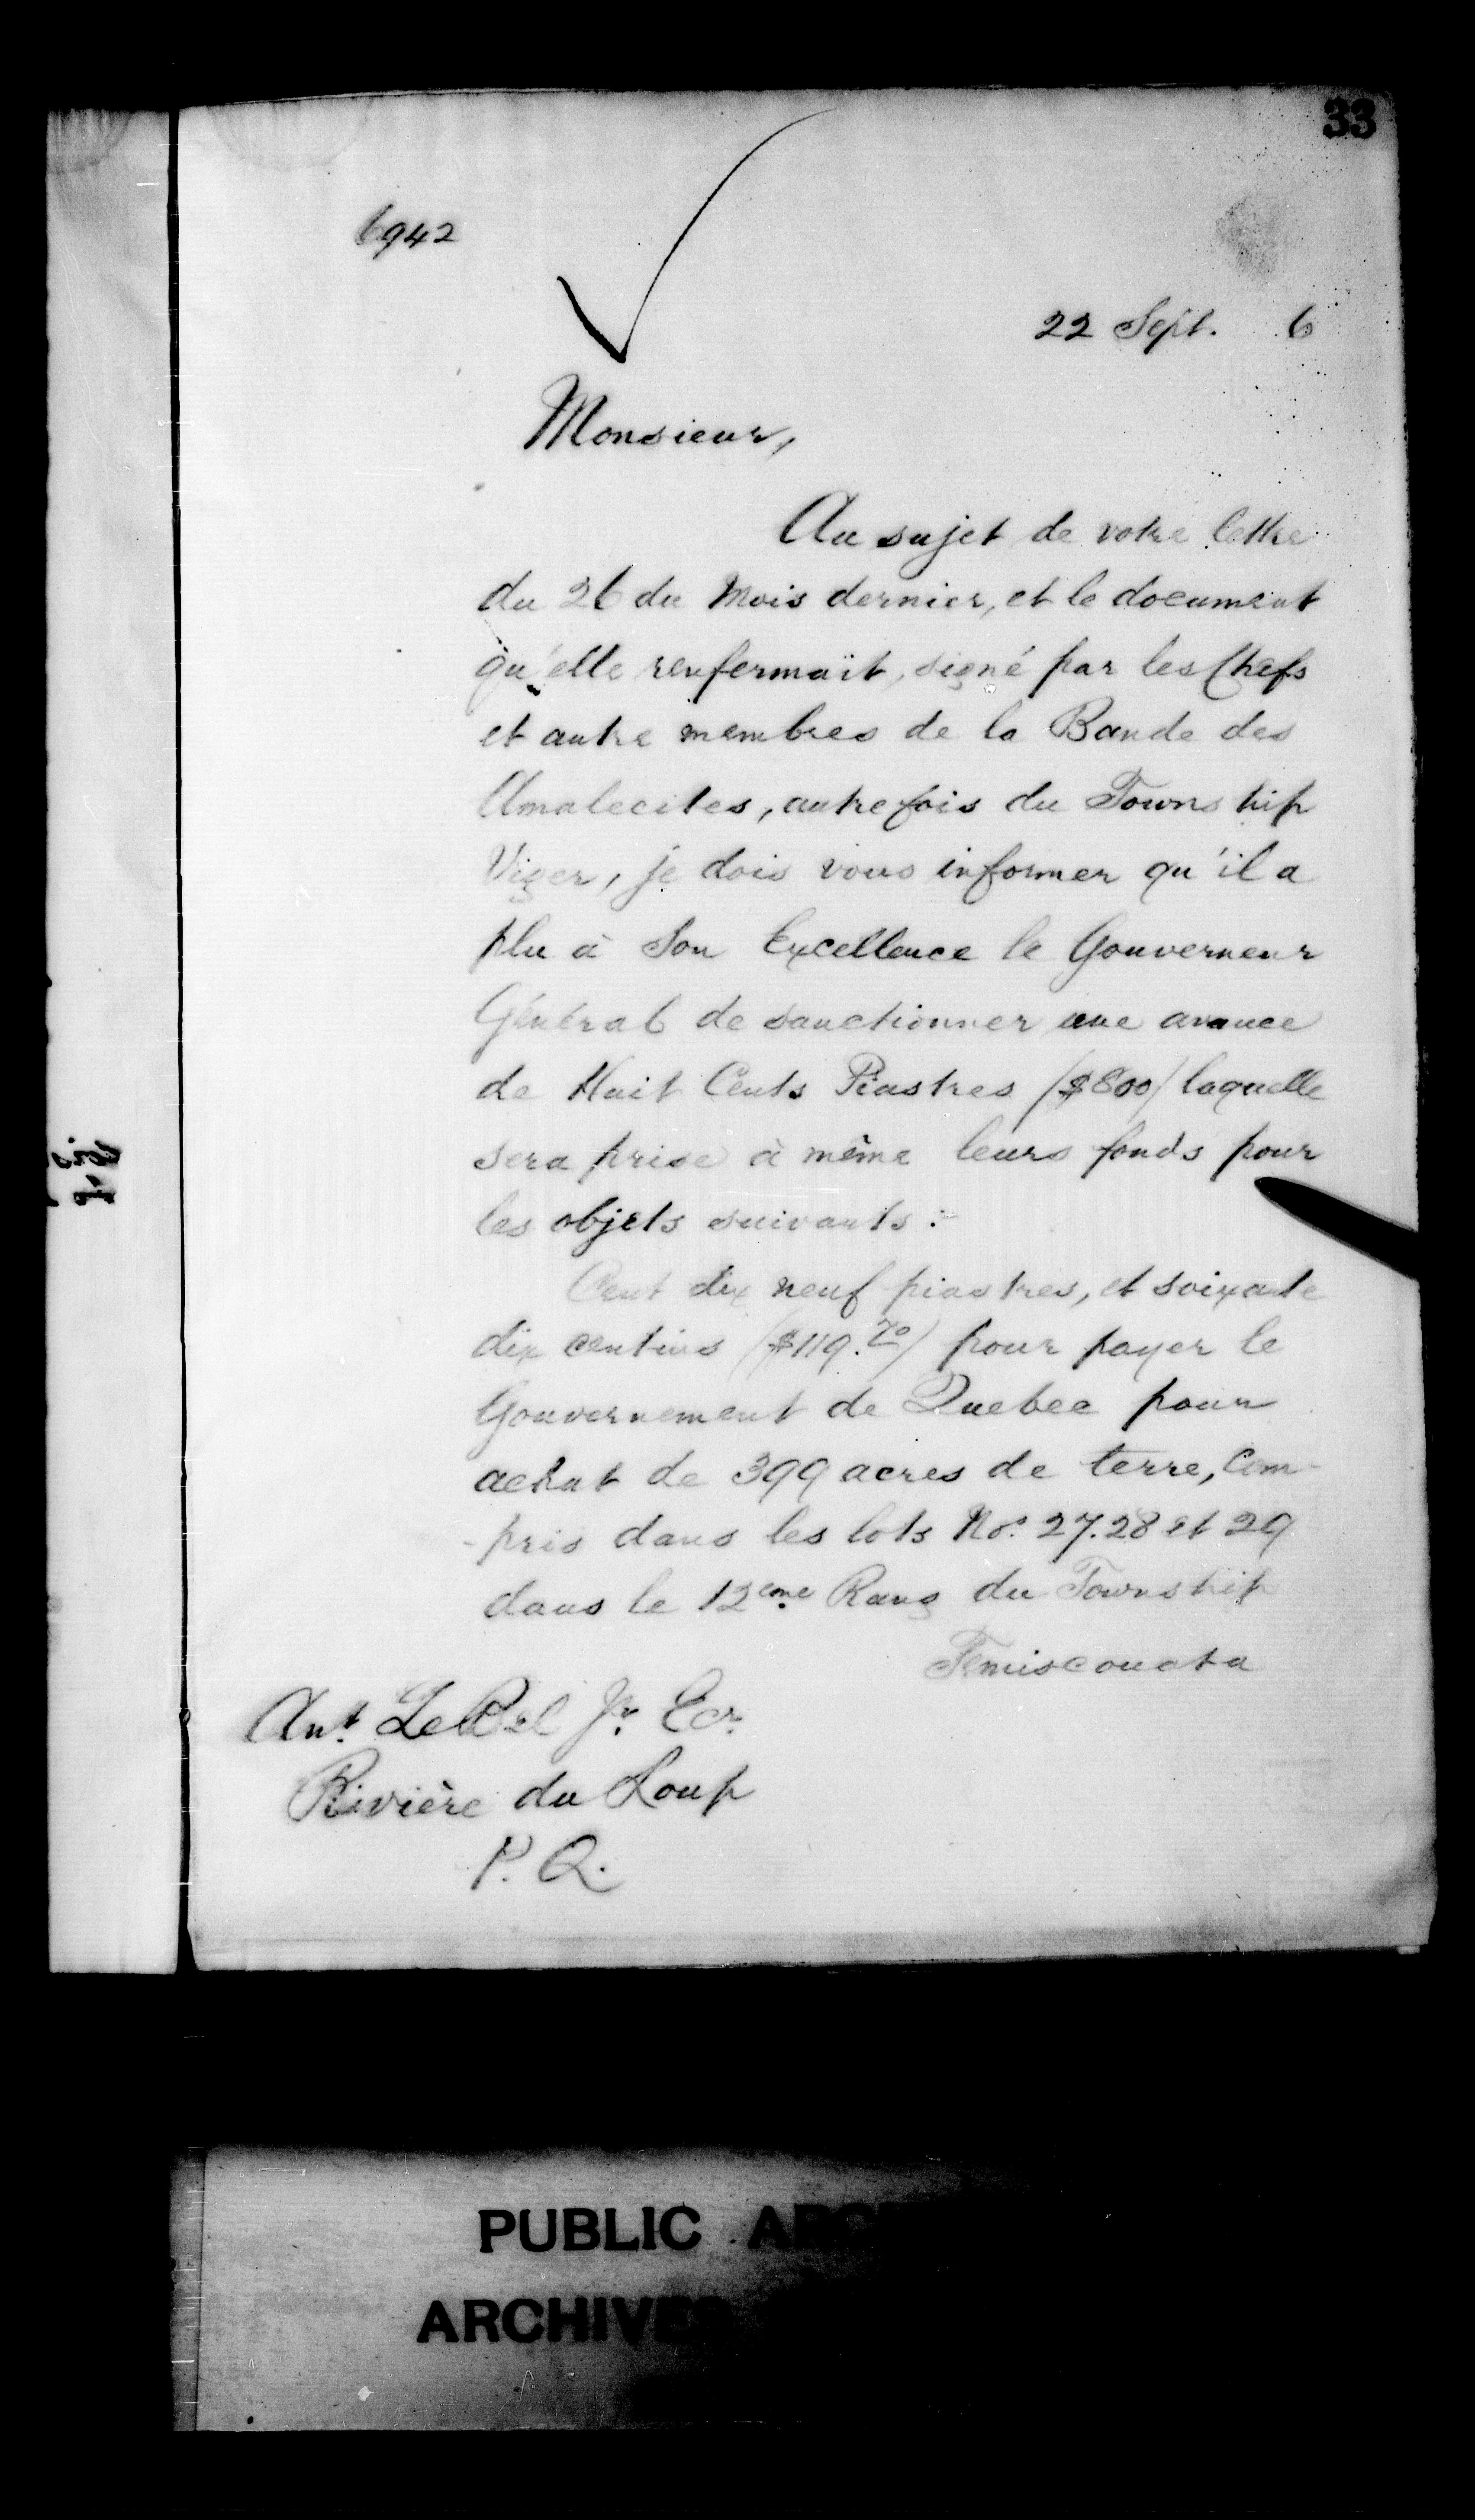 33
6942
22 Sept. 6
Monsieur,
Au sujet de votre lettre
du 26 du Mois dernier, et le document
qu'elle renfermait, signé par les Chefs
et autre membres de la Bande des
Amalecites, autrefois du Township
Viger, je dois vous informer qu'il a
plu à Son Excellence le Gouverneur
Général de sanctionner une avance
de Huit Cents Piastres ($800) laquelle
sera prise à même leurs fonds pour
les objets suivants :-
Cent dix neuf piastres, et soixante
dix centins ($119.70) pour payer le
Gouvernement de Quebec pour
achat de 399 acres de terre, Com-
-pris dans les lots No. 27.28 et 29
dans le 12eme Rang du Township
Temiscouata
Ant. LeBel Jr. Ecr.
Rivière du Loup
P. Q.
PUBLIC ARC
ARCHIVES